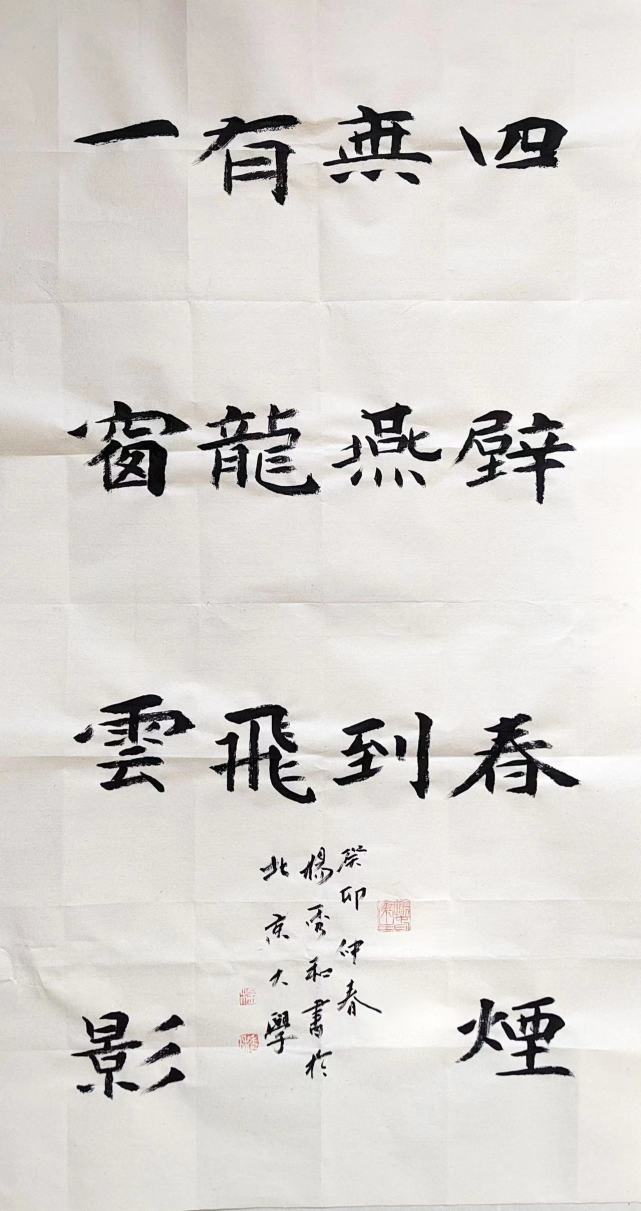 四壁春煙
無燕到
一窗雲影
有龍飛
癸卯仲春
楊秀和書於
北京大學